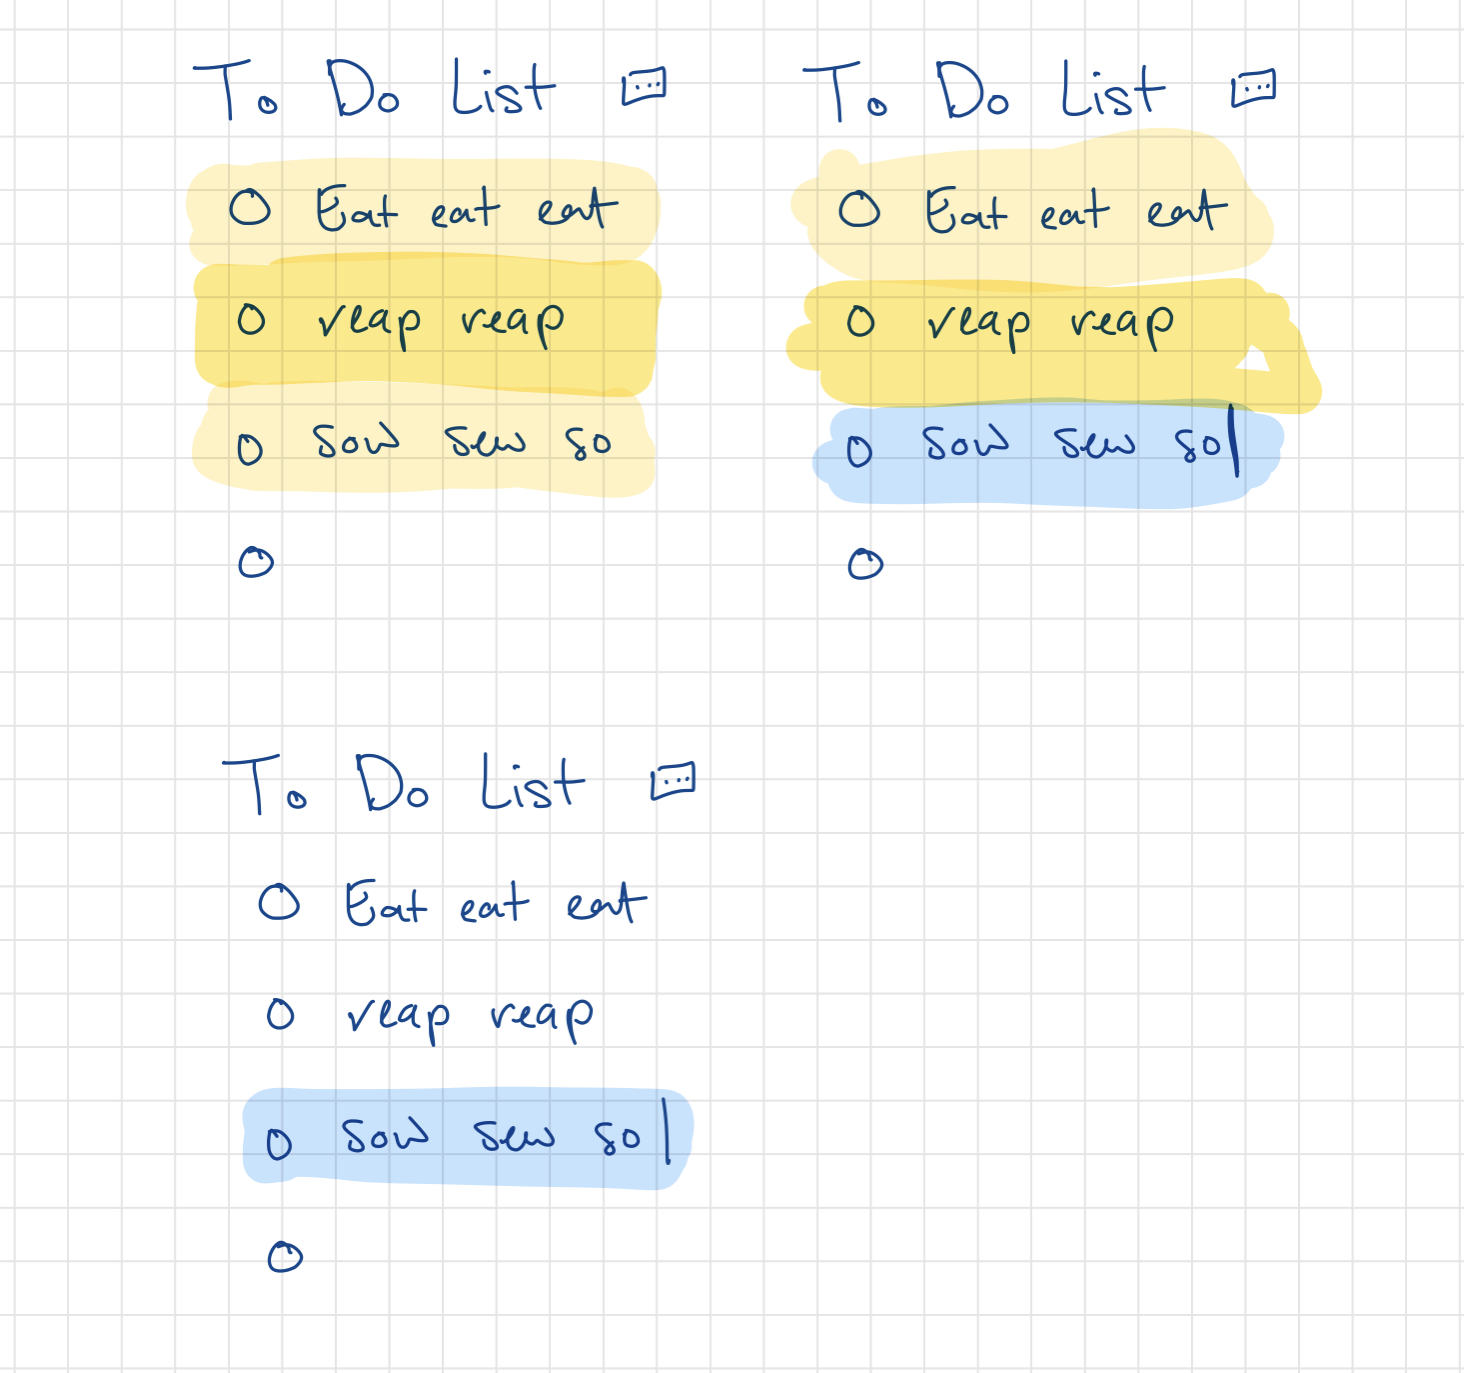 To Do List
O Eat eat eat
O reap reap
O sow sew so|
O
To Do List
O Eat eat eat
O reap reap
O sow sew so|
O
To Do List
O Eat eat eat
O reap reap
O sow sew so|
O